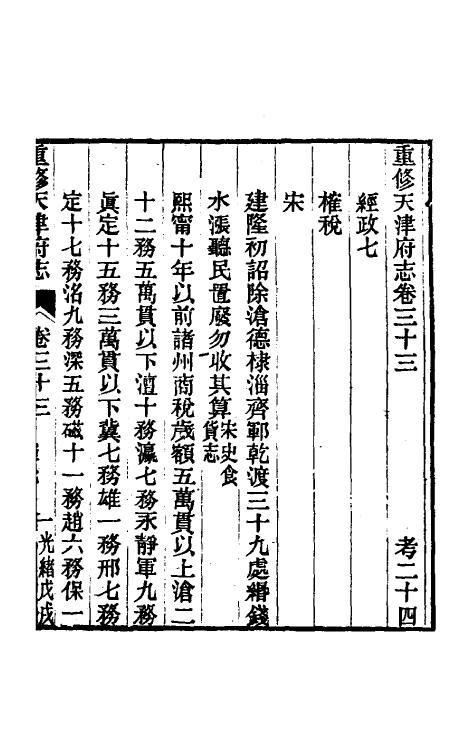 重修天津府志卷三十三　考二十四
經政七
榷稅
宋
建隆初詔除滄德棣淄齊鄆乾渡三十九處緡錢
水漲聽民置廢勿收其算宋史食貨志
熙甯十年以前諸州商稅歲額五萬貫以上滄二
十二務五萬貫以下澶十務瀛七務永靜軍九務
眞定十五務三萬貫以下冀七務雄一務邢七務
定十七務洺九務深五務磁十一務趙六務保一
重修天津府志　卷三十三　一　光緒戊戌